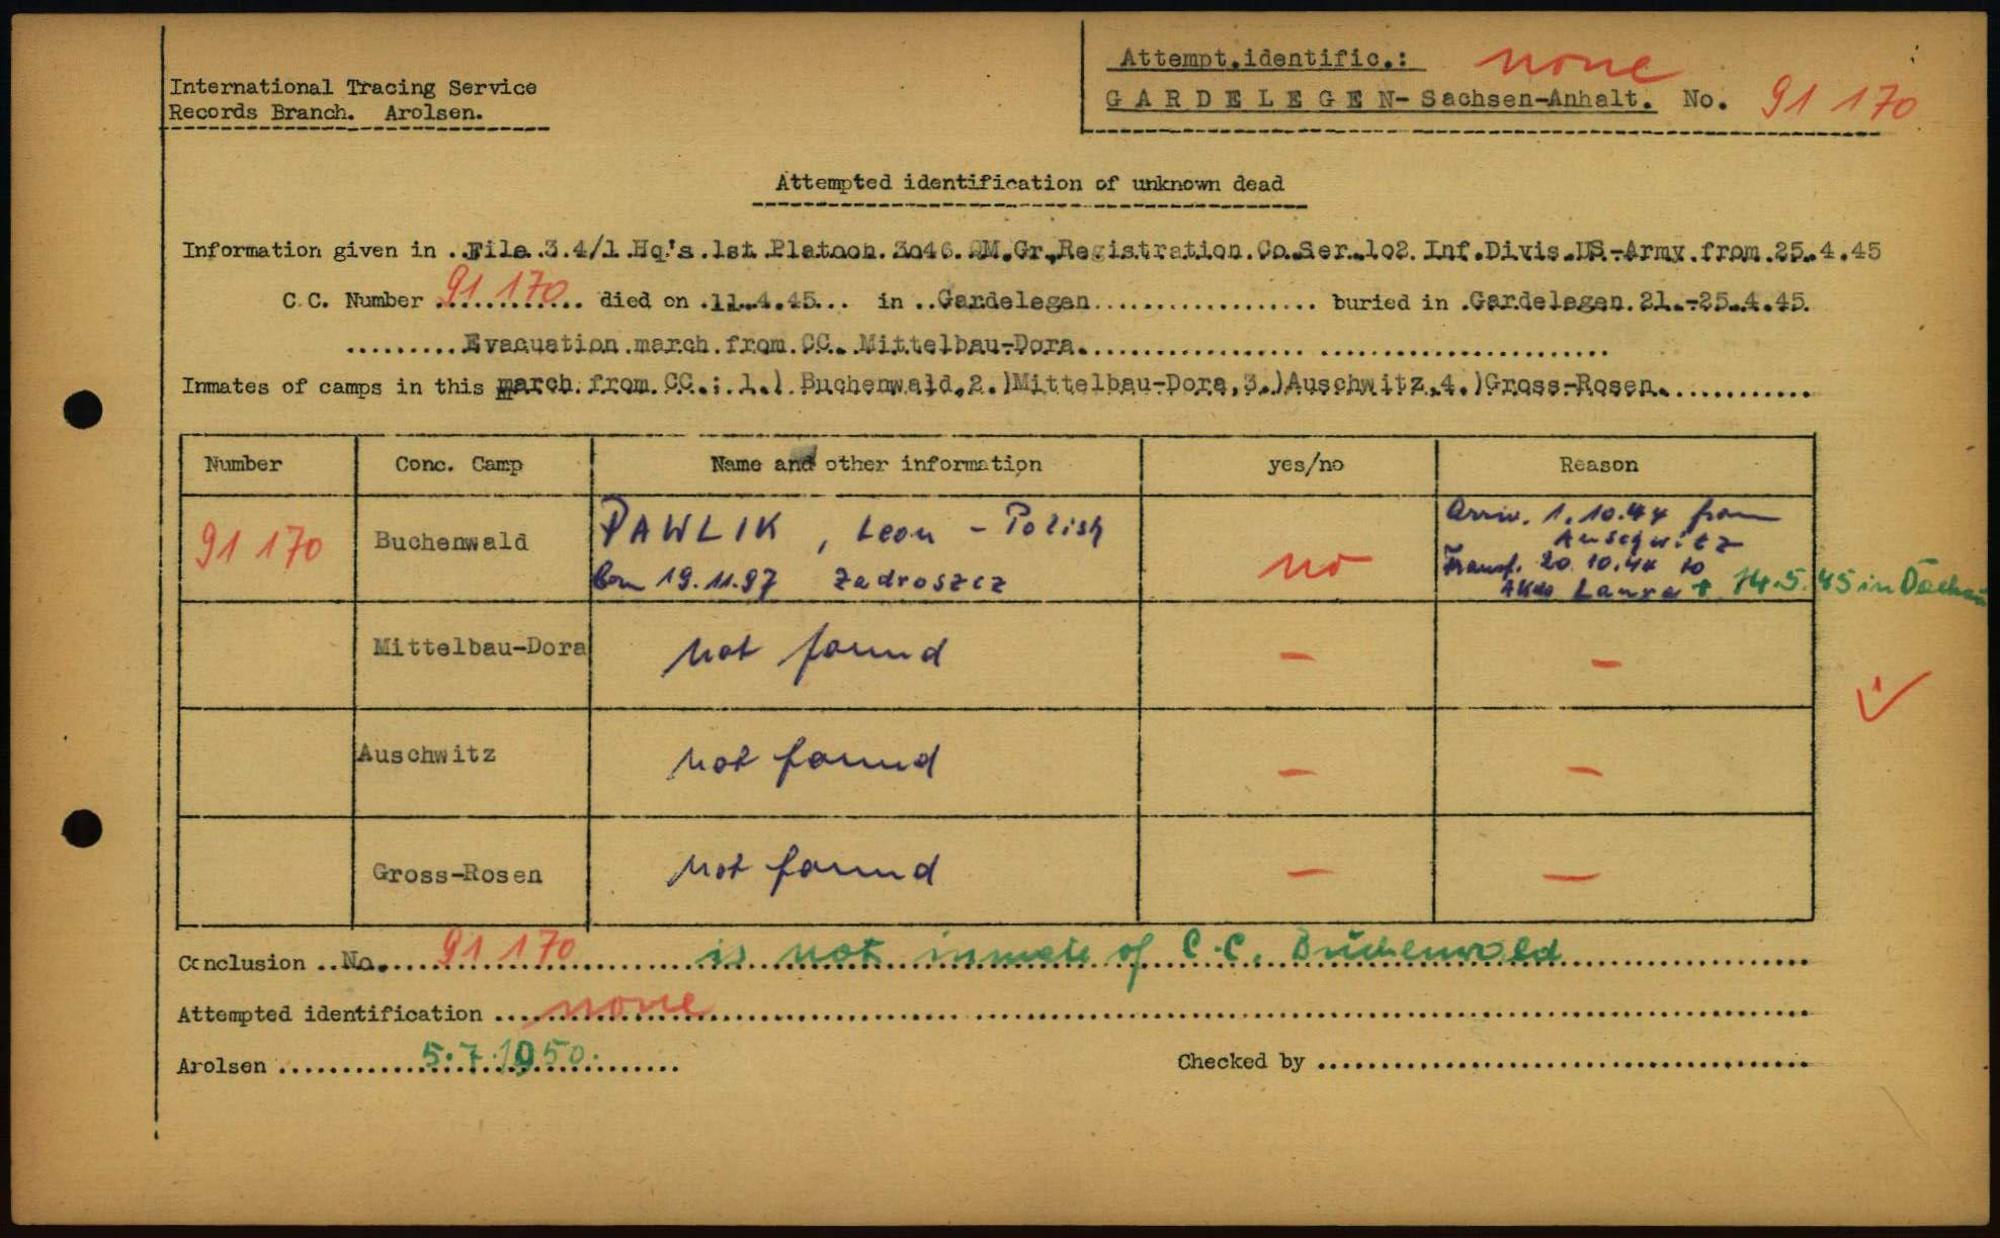 Attempt.identific.: none
International Tracing Service
GARDELEGEN-Sachsen-Anhalt. No. 91 170
Records Branch. Arolsen.
Attempted identification of unknown dead
Information given in ..File.3.4/1.Hq.'s.1st.Platoon.3o46.QM.Gr.Registration.Co.Ser.1o2.Inf.Divis.US.-Army.from.25.4.45
C.C. Number 91 170 died on .11.4.45... in ..Gardelegen.................... buried in .Gardelegen.21.-25.4.45.
.........Evacuation.march.from.CC..Mittelbau-Dora..........................................
Inmates of camps in this march.from.CC.:.1.).Buchenwald,2.)Mittelbau-Dora,3.)Auschwitz,4.)Gross-Rosen.............
Number Conc. Camp Name and other information yes/no Reason
91 170 Buchenwald PAWLIK, Leon - Polish no Arriv. 1.10.44 from
Auschwitz
born 19.11.97 Zadroszcz Transf. 20.10.44 to
AKdo Laura + 14.5.45 in Dachau
Mittelbau-Dora not found - -
Auschwitz not found - -
Gross-Rosen not found - -
Conclusion ..No. 91 170 is not inmate of C.C. Buchenwald
Attempted identification ... none
Arolsen ... 5.7.1950. Checked by ...